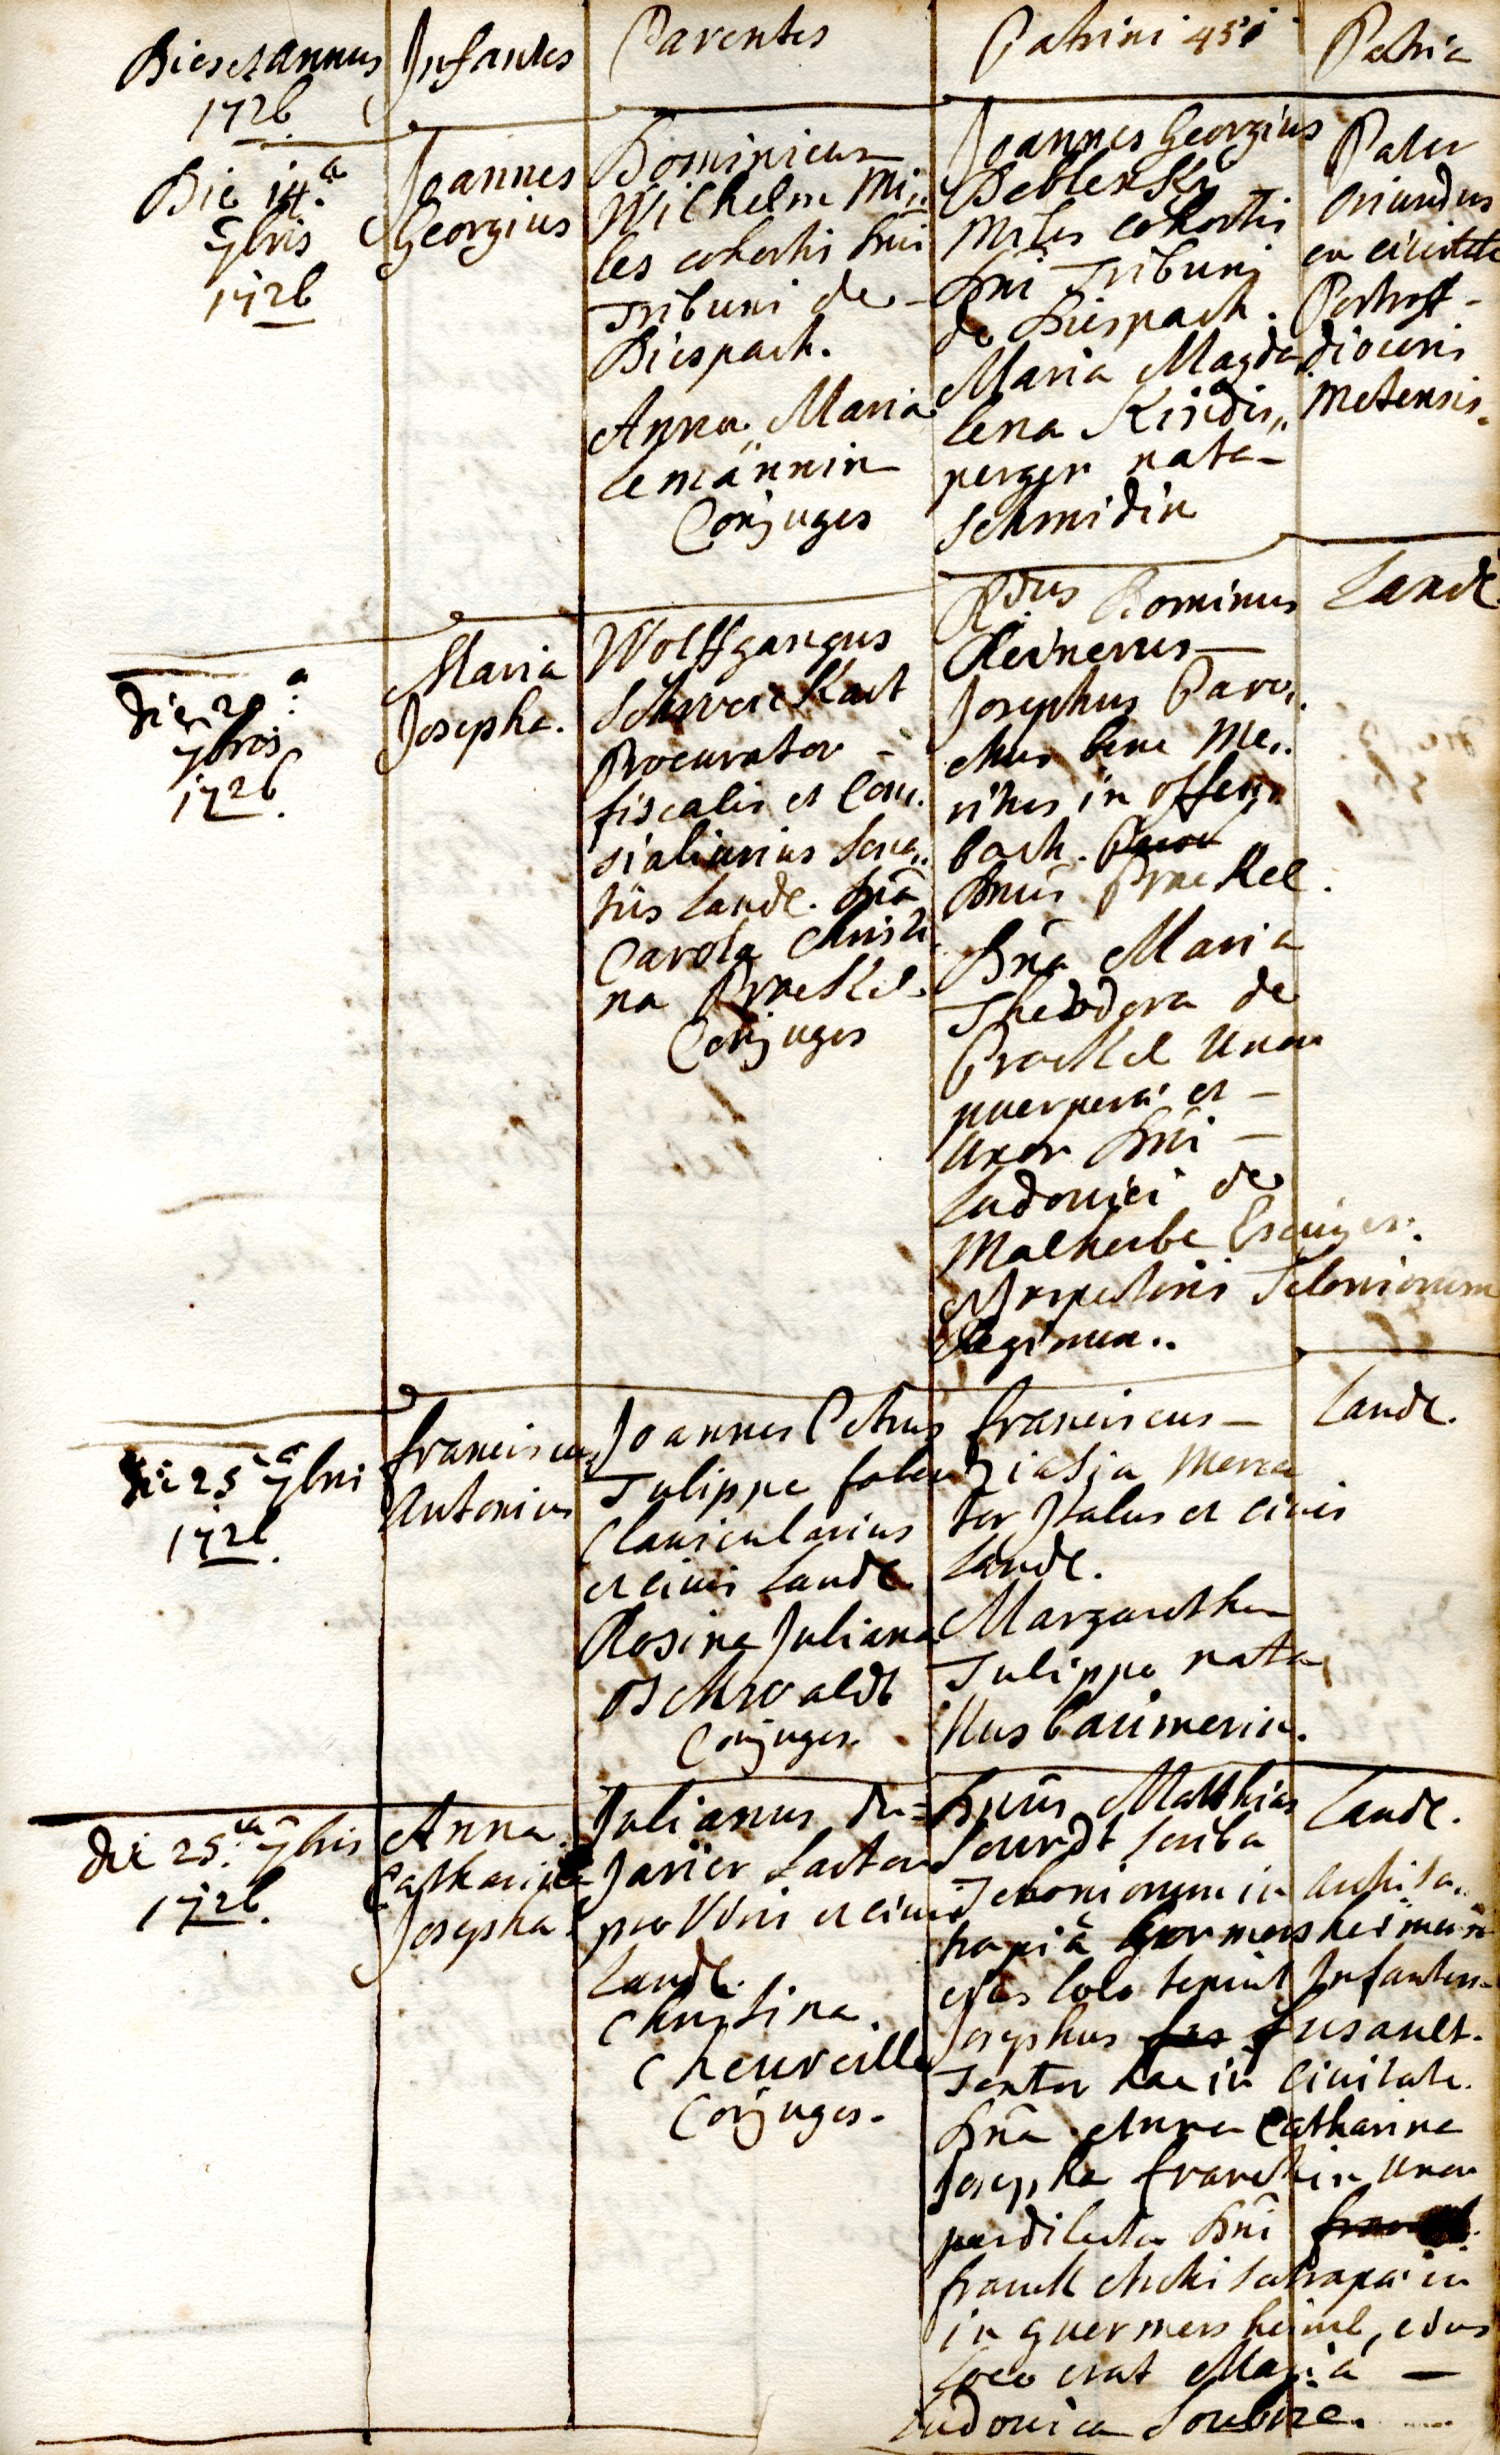 Dies et annus
1726
Infantes
Parentes
Patrini 451
Patria
Die 14.a
7bris
1726
Joannes
Georgius
Dominicus
Wilhelm Mi„
les cohortis Dni
Tribuni de
Diespach.
Anna Maria
Lemännin
Conjuges
Joannes Georgius
Deblensky
Miles cohortis
Dni Tribuni
de Diespach.
Maria Magda
lena
perger nata
Schmidin
Pater
oriundus
ex civitate
diocesis
Metensis.
die 20.a
7bris
1726.
Maria
Josepha.
Wolffgangus
Schweickart
Procurator
fiscalis et Con.
siliarius Sena„
tus Land. Dna
Carola Christi
na Brackel.
Conjuges
Rdus Dominus
Reinerus
Josephus Paro.
chus bene Me„
ritus in Offen
bach.
Dnus Brackel.
Dna Maria
Theodora de
Brackel Uxor
puerpera et
Uxor Dni
Ludovici de
Malherbe
et Inspectoris Teloniorum
Regionum..
Land.
die 25.a 7bris
1726.
franciscus
Antonius
Joannes Petrus
Tulippe faber
Clavicularius
et civis Land.
Rosina Juliana
Oschwaldt
Conjuges.
franciscus
Ziasia Merca
tor Italus et civis
Land.
Margaretha
Tulippe nata
Nusbaumerin.
Land.
die 25.a 7bris
1726.
Anna
Catharina
Josepha.
Julianus du=
Jarïer Sartor
pro Viris et civis
Land.
Christina.
Cheureille
Conjuges.
Dnus Matthias
Sourdt Scriba
Teloniorum in Archisa„
trapiâ Germersheimen
ejus loco tenuit Infantem
Josephus fusault.
Textor hac in Civitate.
Dna Anna Catharina
Josepha franckin Uxor
perdilecta Dni
franck Archisatrapa in
in Guermersheim, ejus
Loco erat Maria
Ludovica Soubire.
Land.